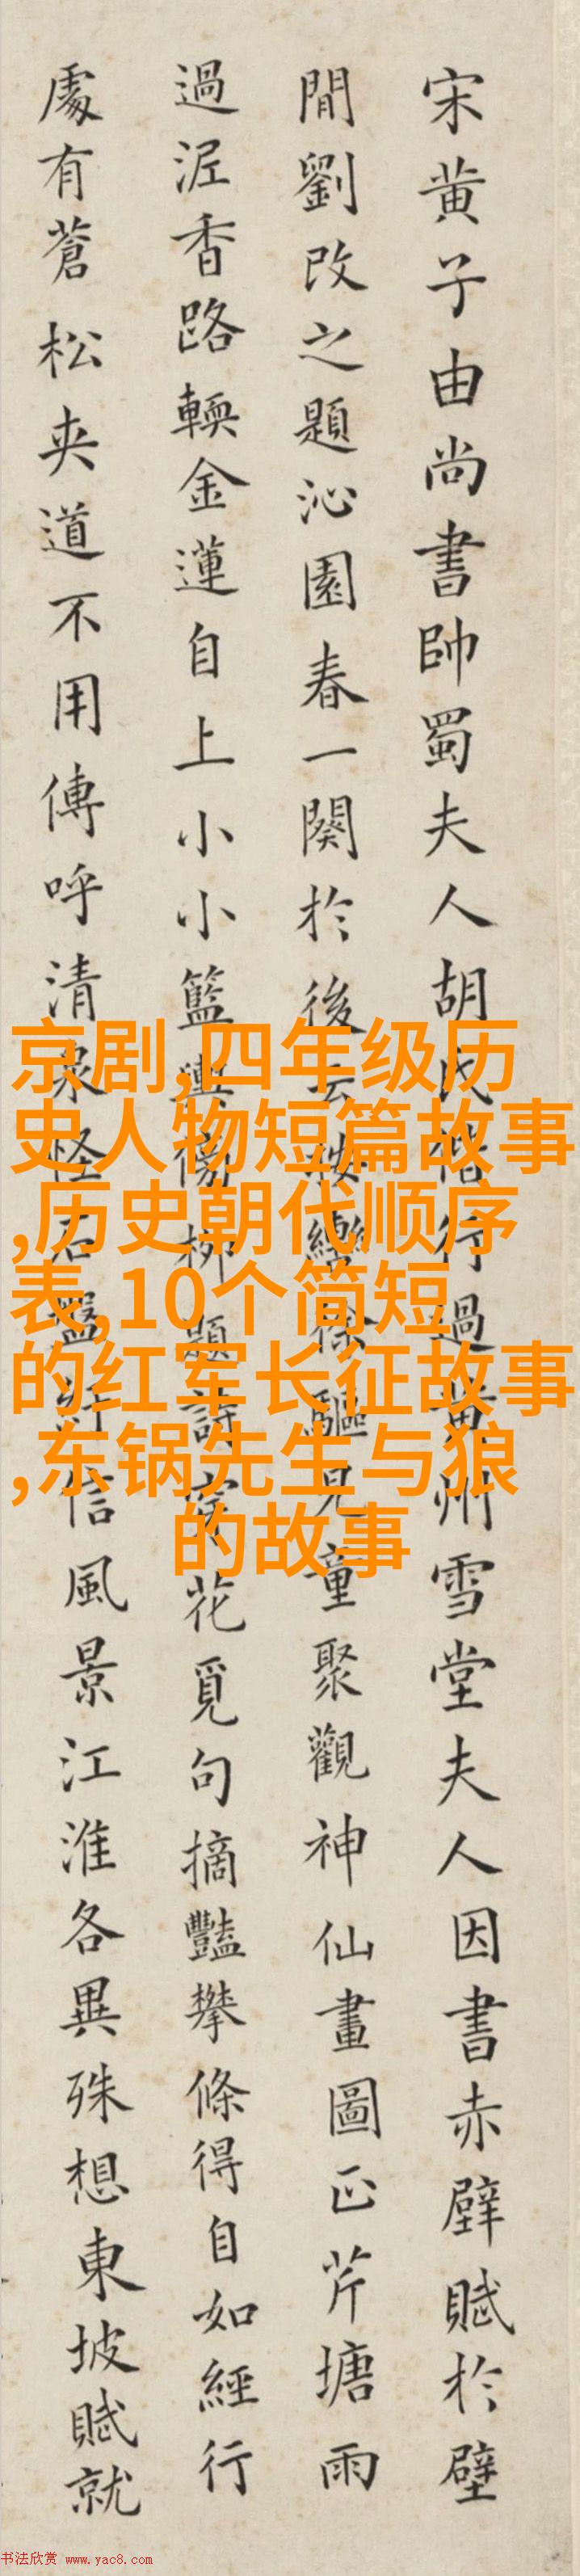 宋黄子由尚書帥蜀夫人胡氏偕行過黄州雪堂夫人因書赤壁賦於壁
間劉改之題沁園春一闋於後云按轡徐驅兒童聚觀神仙畫圖正芹塘雨
過泥香路輭金蓮自上小小籃輿傍柳題詩穿花覓句摘豔攀條得自如經行
處有蒼松夾道不用傳呼清泉怪石盤紆信風景江淮各異殊想東坡賦就
京剧,四年级历
史人物短篇故事
,历史朝代顺序
表,10个简短
的红军长征故事
,东锅先生与狼
的故事
书法欣赏 www.yac8.com